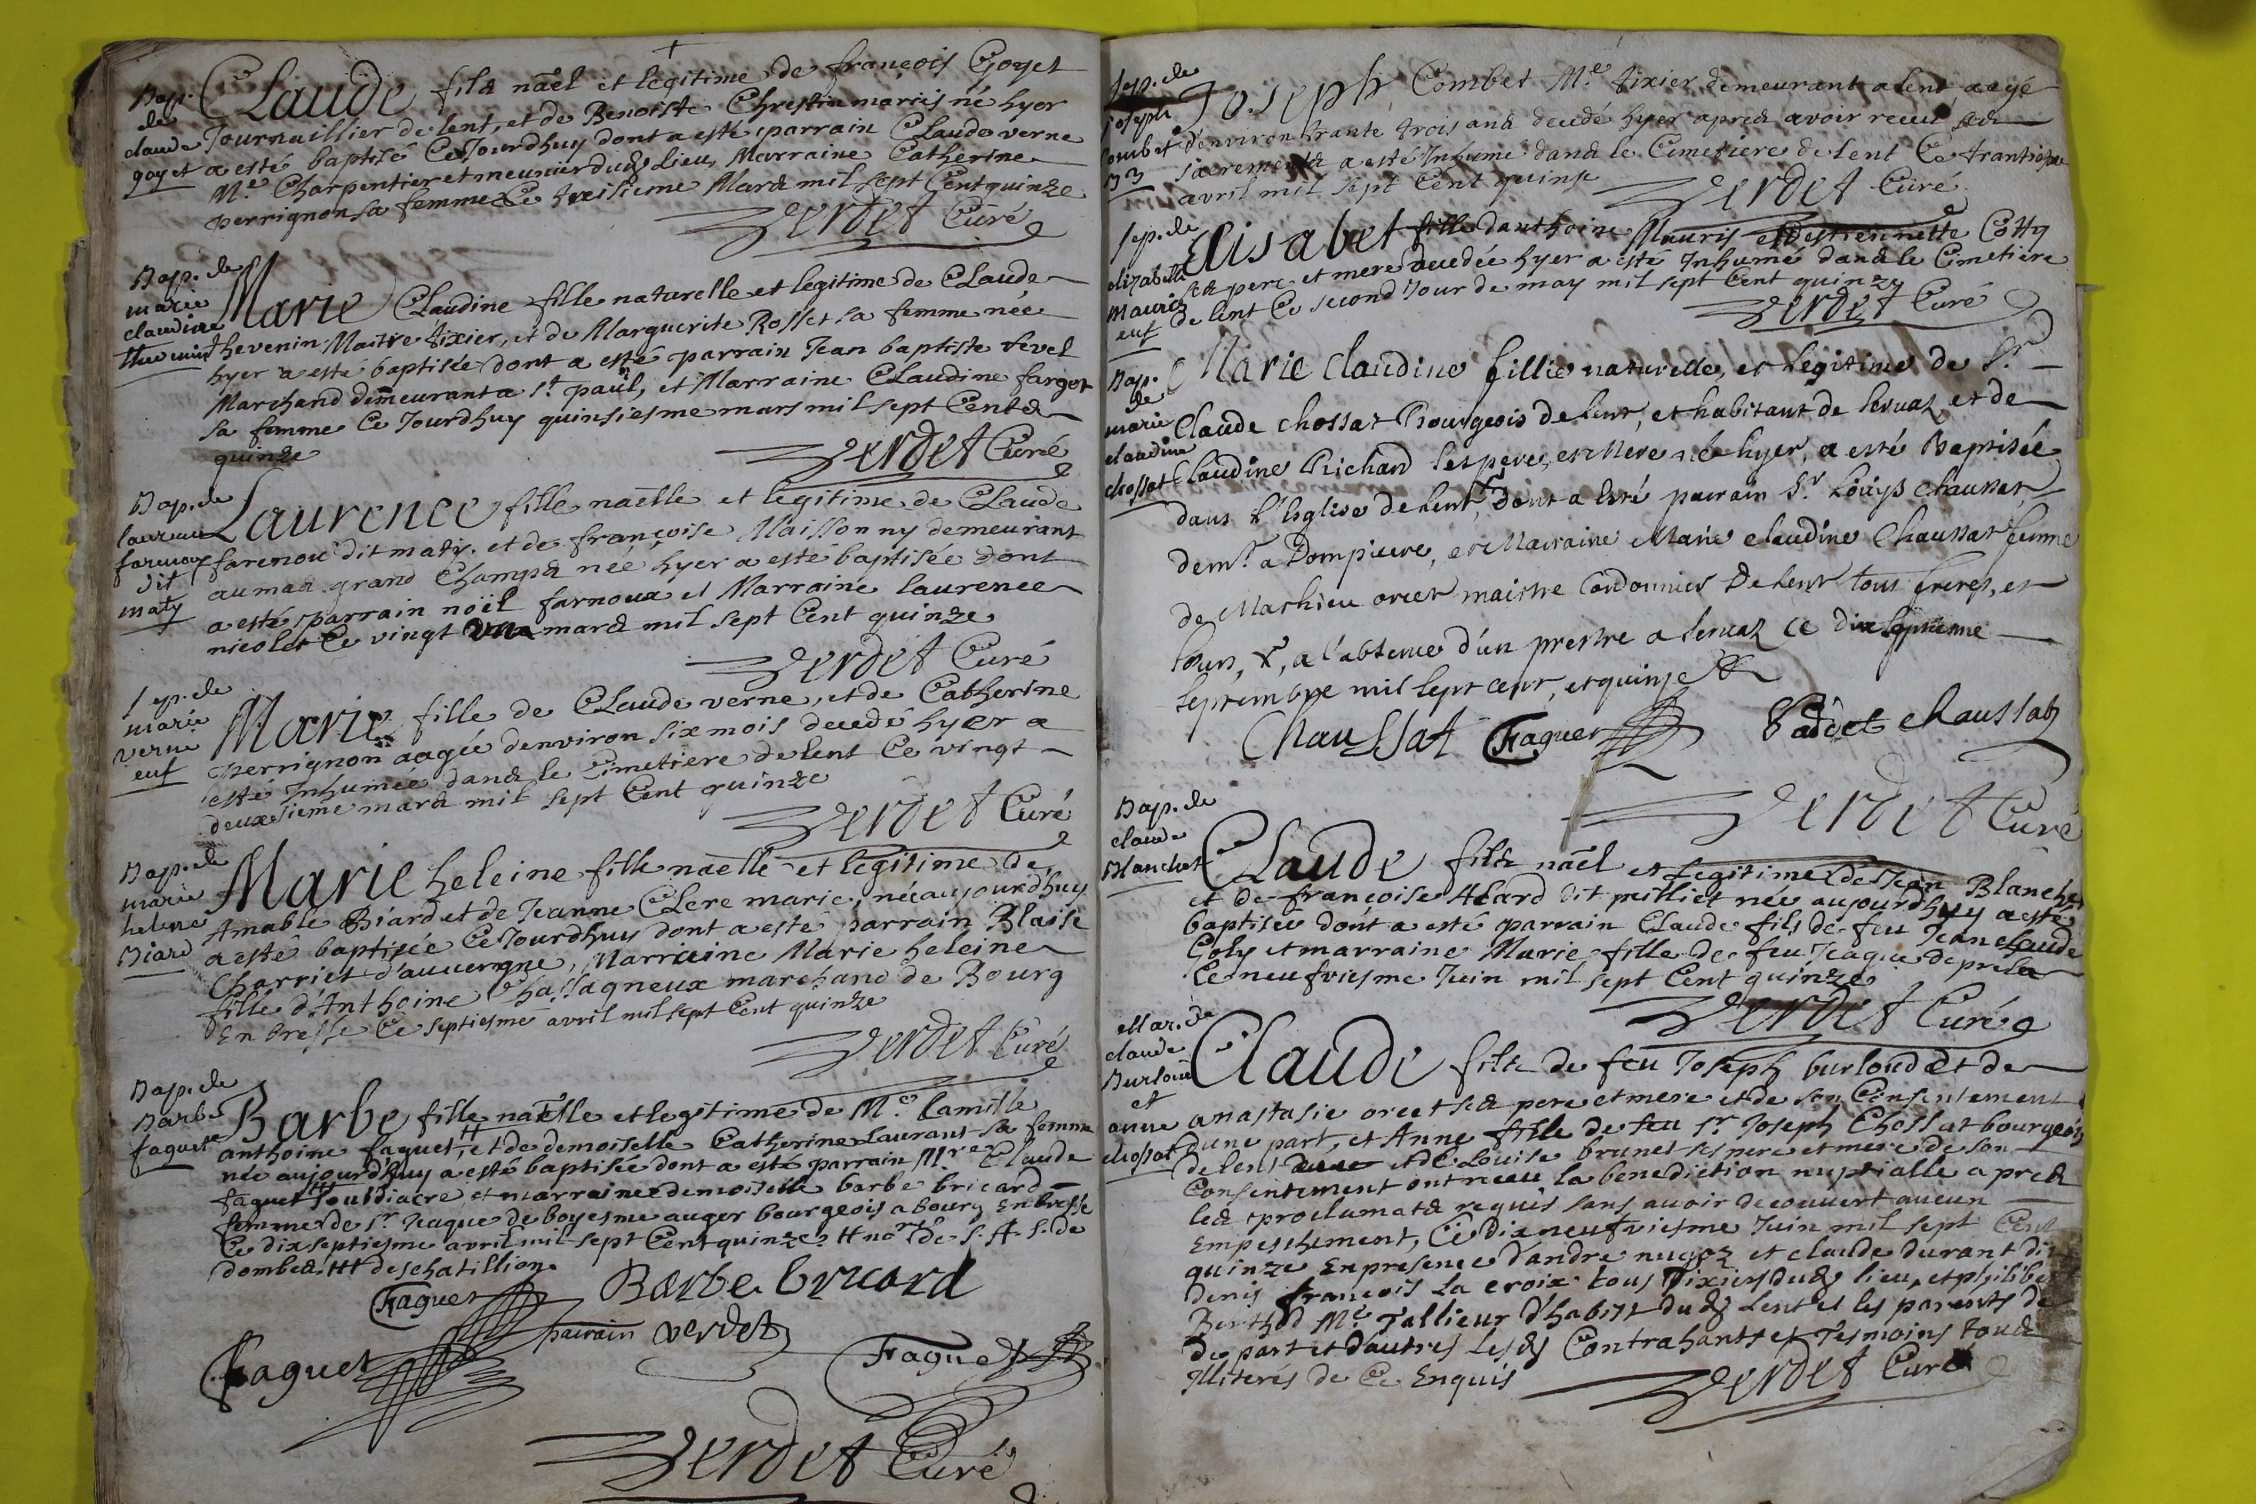 Bap. de
claude
goyet
Claude fils nãel et legitime de françois Goyet
Journaillier de lent, et de Benoiste Chrestin mariés né hyer
a esté baptisé Ce Jourdhuy dont a esté parrain Claude verne
Me. Charpentier et meunier dud. lieu, Marraine Catherine
perrignon sa femme Ce treisieme Mars mil sept Cent quinze
Verdet Curé
Bap. de
marie
claudine
thevenin
Marie Claudine fille naturelle et legitime de Claude
thevenin Maitre tixier, et de Marguerite Rosset sa femme née
hyer a esté baptisée dont a esté parrain Jean baptiste revel
Marchand demeurant a St. paul, et Marraine Claudine fargot
sa femme Ce Jourdhuy quinsiesme mars mil sept Cents
quinze
Verdet Curé
Bap. de
dit
maty
Laurence fille naelle et legitime de Claude
farnou dit maty. et de françoise Maissonny demeurant
au mas grand Champs née hyer a esté baptisée dont
a esté parrain noël farnoux et Marraine laurence
nicolet Ce vingt un mars mil sept Cent quinze
Verdet Curé
Sep. de
marie
verne
enf
Marie fille de Claude verne, et de Catherine
perrignon aagée denviron six mois decedé hyer a
esté Inhumée dans le Cimetiere de lent Ce vingt
deuxsieme mars mil sept Cent quinze
Verdet Curé
Bap. de
marie
helene
Biard
Marie heleine fille naelle et legitime de
Amable Biard et de Jeanne Clere marié, née aujourdhuy
a esté baptisée Ce Jourdhuy dont a esté parrain Blaise
Charriet d'auvergne, Marraine Marie heleine
fille d'Anthoine Chassagneux marchand de Bourg
En bresse Ce septiesme avril mil sept Cent quinze
Verdet Curé
Bap. de
Barbe
faguet
Barbe fille naelle et legitime de Me. Camille
anthoine faguet, et de demoiselle Catherine Laurant sa femme
née aujourd'huy a esté baptisée dont a esté parrain Mre. Claude
faguet soudiacre, et marraine demoiselle barbe bricard
femme de Sr. Jaque de boyesme auger bourgeois a bourg En bresse
Ce dix septiesme avril mil sept Cent quinze. # nore. de S. A. S. de
dombes ## de chatillion
Faguet Barbe bricard
Faguet parrain verdet Faguet
Verdet Curé
Sep. de
Joseph
Combet
33
Joseph Combet Me. tixier demeurant a lent aagé
d'environ trante trois ans decedé hyer apres avoir receu ses
sacrements a esté Inhumé dans le Cimetiere de lent Ce
avril mil sept Cent quinse
Verdet Curé
Sep. de
elizabeth
Mauris
enf
Elisabet fille danthoine Mauris et destiennette Cotty
ses pere et mere decedée hyer a esté Inhumé dans le Cimetiere
de lent Ce second Jour de may mil sept Cent quinze
Verdet Curé
Bap.
de
marie
claudine
chossat
Marie Claudine fillie naturelle, et legitime de Sr.
Claude chossat Bourgeois de Lent, et habitant de Servaz, et de
Claudine Richard ses pere, et Mere née hyer, a esté Baptisée
dans l'Eglise de Lent, dont a esté parrain Sr. Loüys Chaussat
demt. a Dompierre, et Marraine Marie claudine Chaussat femme
de Mathieu orcet maistre Cordonnier de Lent tous freres, et
sœurs, &, a l'absence d'un prestre a Servaz ce dix septieme
septembre mil sept cent, et quinze &
Chaussat Faguet Vadet chaussat
Verdet Curé
Bap. de
claude
Blanchet
Claude fils nãel et legitime de Jean Blanchet
et de françoise Alard dit prilliet née aujourdhuy a esté
baptisée dont a esté parrain Claude fils de feu Jean Claude
Goly et marraine Marie fille de feu Jaque de prela
Ce neufviesme Juin mil sept Cent quinze
Verdet Curé
Mar. de
claude
Burloud
et
anne
chossat
Claude fils de feu Joseph burloud et de
anastasie orcet ses pere et mere et de son Consentement
d'une part, et Anne fille de feu Sr. Joseph Chossat bourgeois
de lent et de Louise brunet ses pere et mere de son
Consentement ont receu la benediction nuptialle apres
les proclamats requis sans avoir decouvert aucun
Empeschement, Ce dix neufviesme Juin mil sept Cent
quinze En presence d'andre nugoz et claude durant dit
denis françois la croix tous tixiers dud. lieu, et philibe
Berthod Me. Tallieur d'habist dud. Lent et les parents de
de part et dautres Lesd. Contrahants et Tesmoins tous
Illiterés de Ce Enquis
Verdet Curé